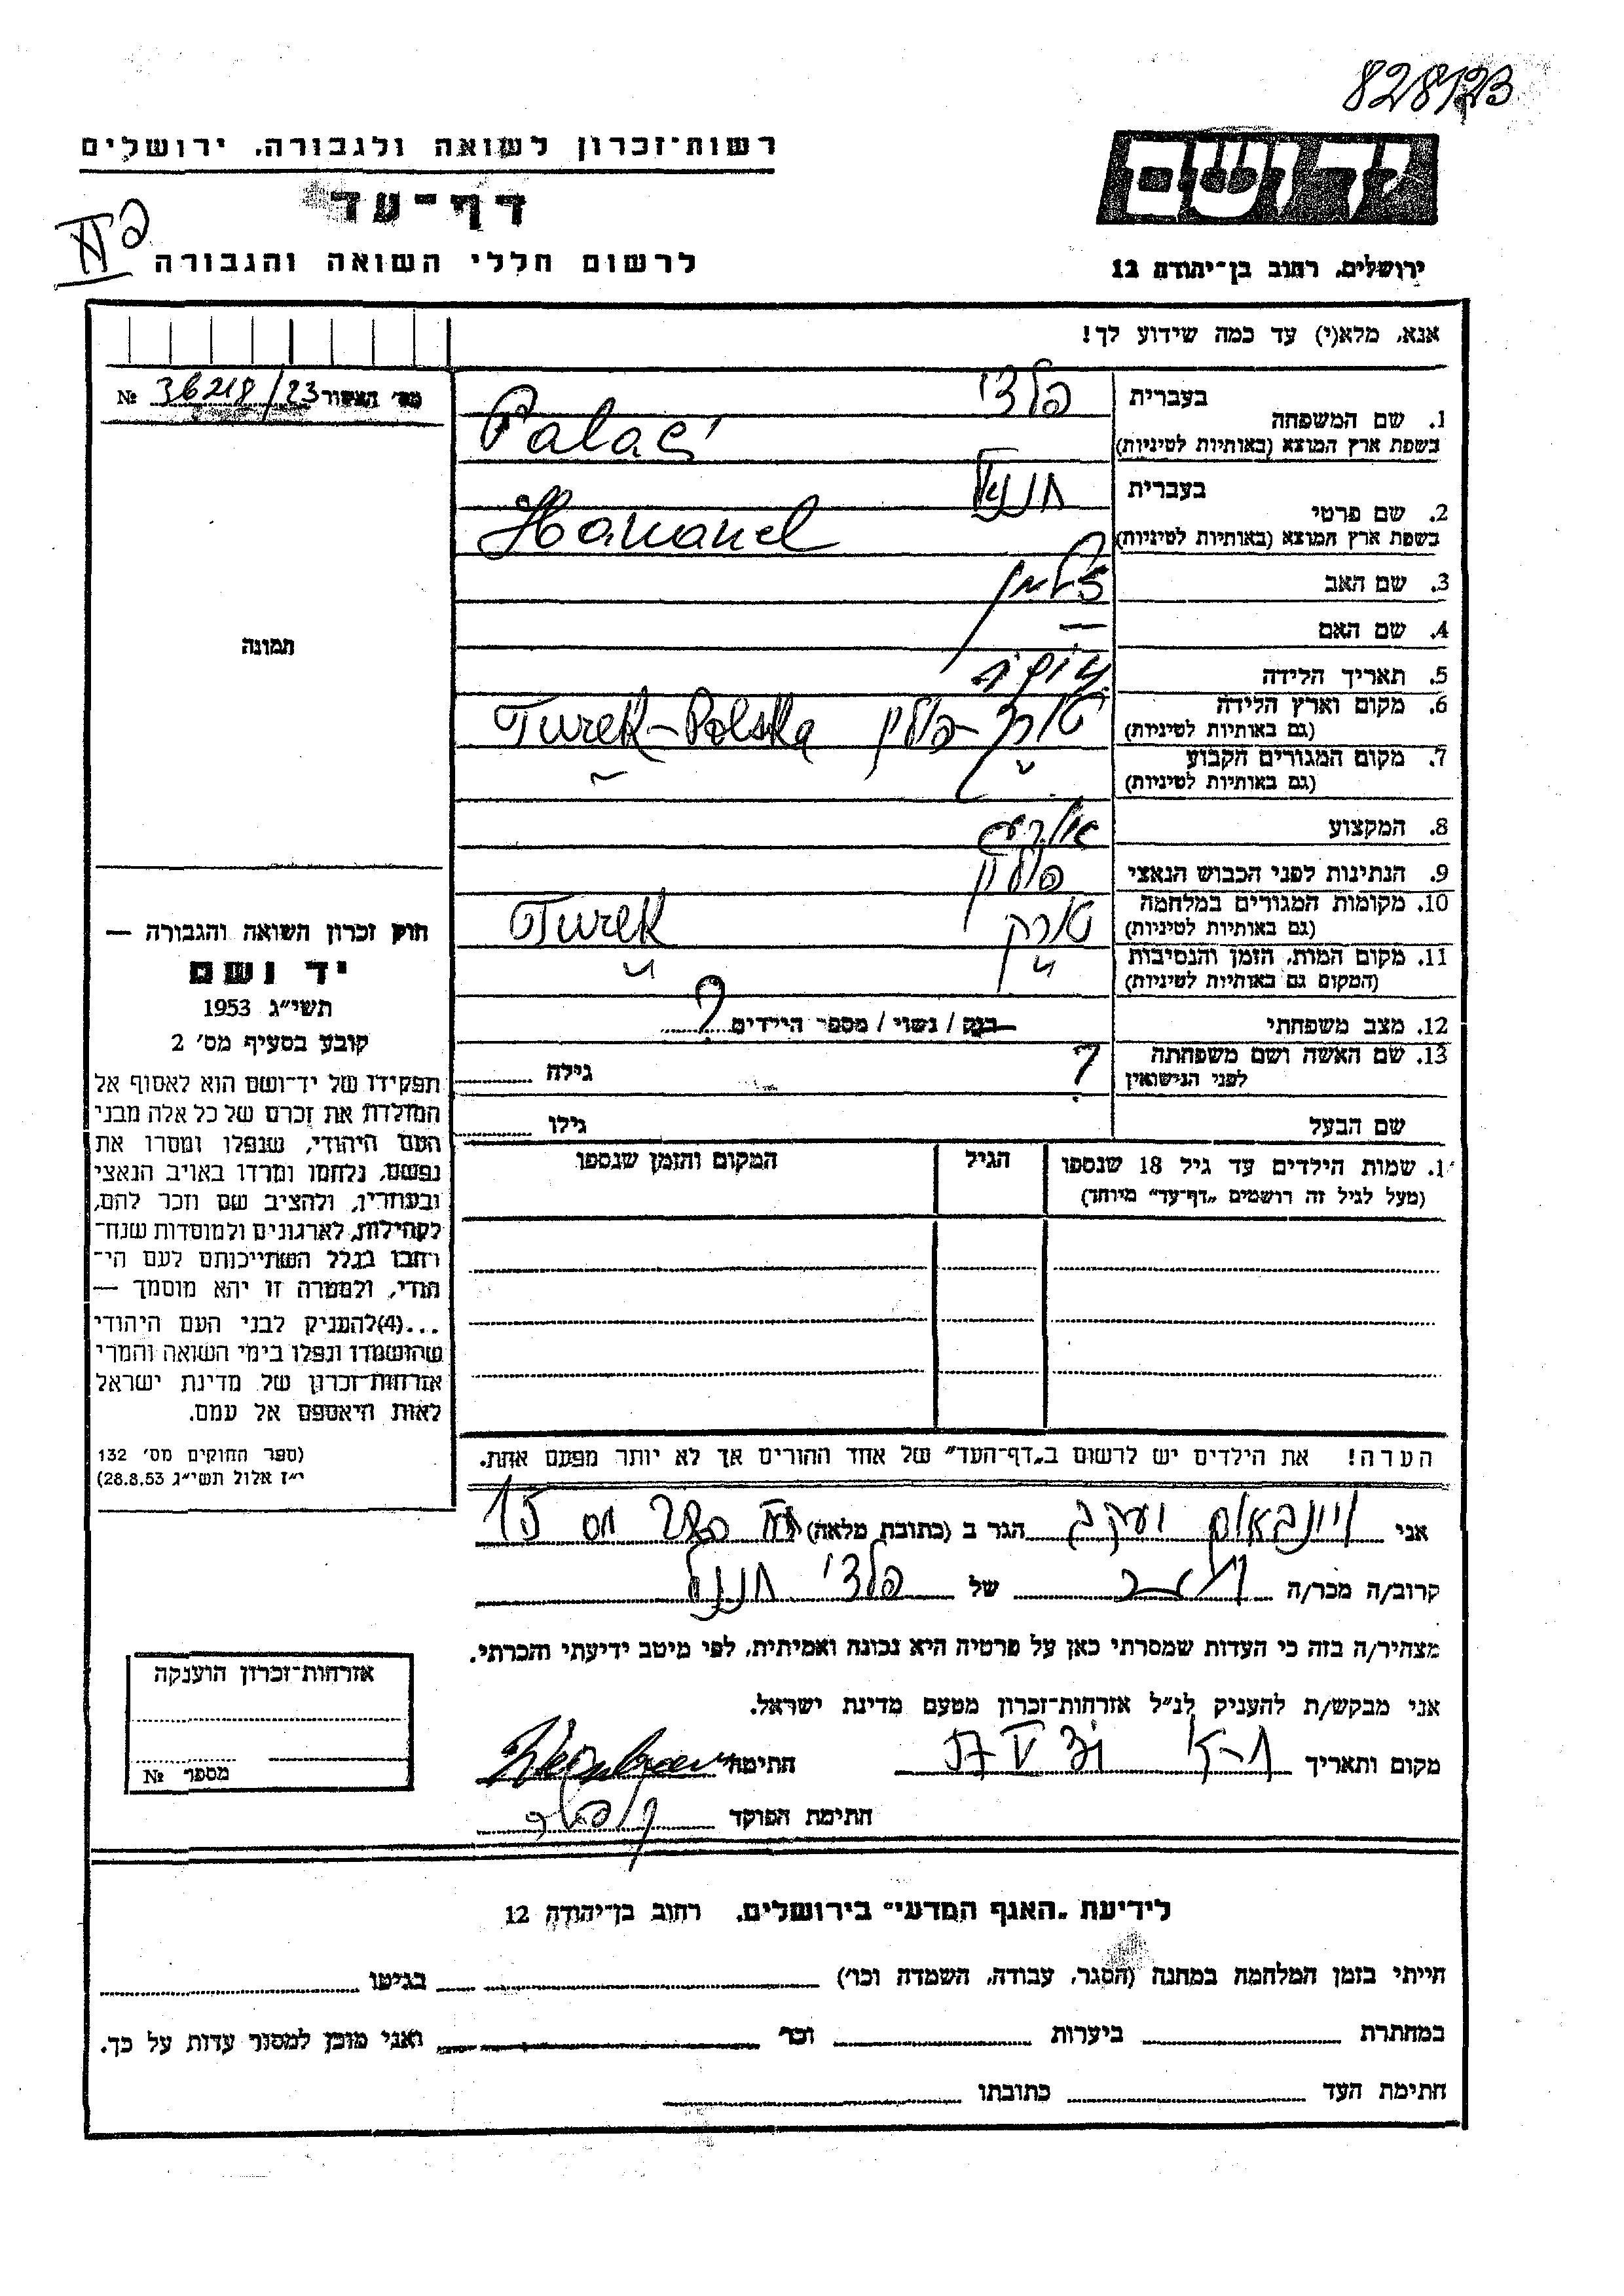 828123
רשות־זכרון לשואה ולגבורה, ירושלים
דף־עד
לרשום חללי השואה והגבורה
פ II
ידושם
ירושלים, רחוב בן־יהודה 12
אנא, מלא(י) עד כמה שידוע לך!
מס׳ האשור 36218/23 №
תמונה
1. שם המשפחה בעברית פלצ׳י
בשפת ארץ המוצא (באותיות לטיניות) Palaci
2. שם פרטי בעברית חננאל
בשפת ארץ המוצא (באותיות לטיניות) Hananel
3. שם האב זלמן
4. שם האם —
5. תאריך הלידה
6. מקום וארץ הלידה טורק – פולין Turek – Polska
(גם באותיות לטיניות)
7. מקום המגורים הקבוע
(גם באותיות לטיניות) " "
8. המקצוע
9. הנתינות לפני הכבוש הנאצי פולין
10. מקומות המגורים במלחמה טורק Turek
(גם באותיות לטיניות)
11. מקום המות, הזמן והנסיבות
(המקום גם באותיות לטיניות) " "
12. מצב משפחתי רווק / נשוי / מספר הילדים ?
13. שם האשה ושם משפחתה ? גילה
לפני הנישואין
שם הבעל גילו
1. שמות הילדים עד גיל 18 שנספו הגיל המקום והזמן שנספו
(מעל לגיל זה רושמים „דף־עד״ מיוחד)
הערה! את הילדים יש לרשום ב„דף־העד״ של אחד ההורים אך לא יותר מפעם אחת.
חוק זכרון השואה והגבורה —
יד ושם
תשי״ג 1953
קובע בסעיף מס׳ 2
תפקידו של יד־ושם הוא לאסוף אל
המולדת את זכרם של כל אלה מבני
העם היהודי, שנפלו ומסרו את
נפשם, נלחמו ומרדו באויב הנאצי
ובעוזריו, ולהציב שם וזכר להם,
לקהילות, לארגונים ולמוסדות שנח־
רבו בגלל השתייכותם לעם הי־
הודי, ולמטרה זו יהא מוסמך —
...(4)להעניק לבני העם היהודי
שהושמדו ונפלו בימי השואה והמרי
אזרחות־זכרון של מדינת ישראל
לאות היאספם אל עמם.
(ספר החוקים מס׳ 132
י״ז אלול תשי״ג 28.8.53)
אני ויינבאום יעקב הגר ב (כתובת מלאה) 15
קרוב/ה מכר/ה של פלצ׳י חננאל
מצהיר/ה בזה כי העדות שמסרתי כאן על פרטיה היא נכונה ואמיתית, לפי מיטב ידיעתי והכרתי.
אני מבקש/ת להעניק לנ״ל אזרחות־זכרון מטעם מדינת ישראל.
מקום ותאריך ת–א V 57 חתימה
חתימת הפוקד
אזרחות־זכרון הוענקה
מספר №
לידיעת „האגף המדעי״ בירושלים, רחוב בן־יהודה 12
הייתי בזמן המלחמה במחנה (הסגר, עבודה, השמדה וכו׳) בגיטו
במחתרת ביערות וכו׳ ואני מוכן למסור עדות על כך.
חתימת העד כתובתו